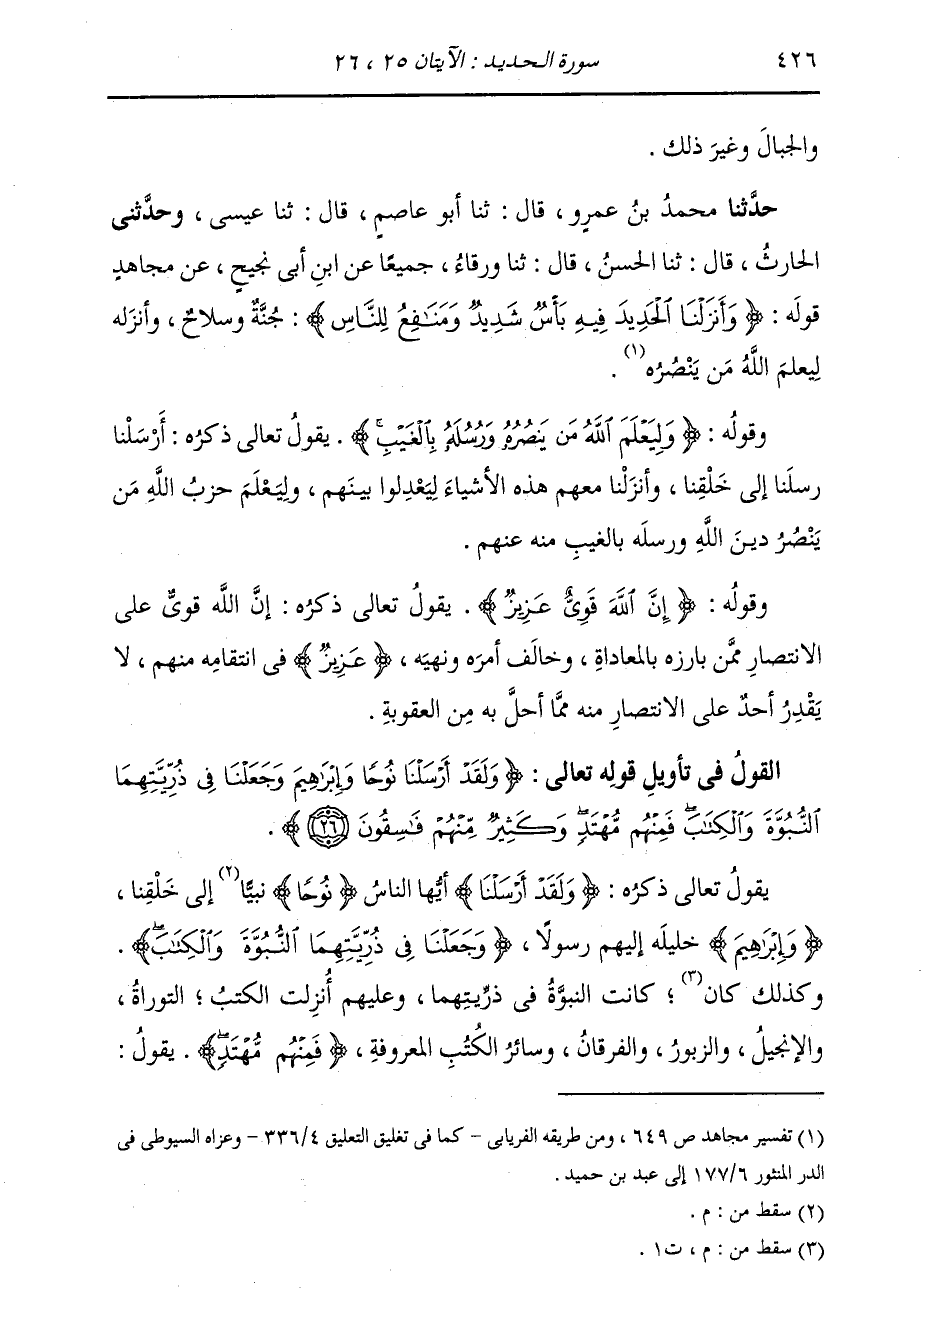 ٤٢٦ سورة الحديد : الآيتان ٢٥ ، ٢٦
والجبالَ وغيرَ ذلك .
حدَّثنا محمدُ بنُ عمرٍو ، قال : ثنا أبو عاصمٍ ، قال : ثنا عيسى ، وحدَّثنى
الحارثُ ، قال : ثنا الحسنُ ، قال : ثنا ورقاءُ ، جميعًا عن ابنِ أبى نجيحٍ ، عن مجاهدٍ
قولَه : ﴿ وَأَنزَلْنَا ٱلْحَدِيدَ فِيهِ بَأْسٌ شَدِيدٌ وَمَنَٰفِعُ لِلنَّاسِ ﴾ : جُنَّةٌ وسلاحٌ ، وأنزَله
لِيعلمَ اللَّهُ مَن يَنْصُرُه(١) .
وقولُه : ﴿ وَلِيَعْلَمَ ٱللَّهُ مَن يَنصُرُهُۥ وَرُسُلَهُۥ بِٱلْغَيْبِ ۚ ﴾ . يقولُ تعالى ذكرُه : أَرْسَلْنا
رسلَنا إلى خَلْقِنا ، وأنزَلْنا معهم هذه الأشياءَ لِيَعْدِلوا بينَهم ، ولِيَعْلَمَ حزبُ اللَّهِ مَن
يَنْصُرُ دينَ اللَّهِ ورسلَه بالغيبِ منه عنهم .
وقولُه : ﴿ إِنَّ ٱللَّهَ قَوِىٌّ عَزِيزٌ ﴾ . يقولُ تعالى ذكرُه : إنَّ اللَّه قوىٌّ على
الانتصارِ ممَّن بارزه بالمعاداةِ ، وخالَف أمرَه ونهيَه ، ﴿ عَزِيزٌ ﴾ فى انتقامِه منهم ، لا
يَقْدِرُ أحدٌ على الانتصارِ منه ممَّا أحلَّ به مِن العقوبةِ .
القولُ فى تأويلِ قولِه تعالى : ﴿ وَلَقَدْ أَرْسَلْنَا نُوحًا وَإِبْرَٰهِيمَ وَجَعَلْنَا فِى ذُرِّيَّتِهِمَا
ٱلنُّبُوَّةَ وَٱلْكِتَٰبَ ۖ فَمِنْهُم مُّهْتَدٍ ۖ وَكَثِيرٌ مِّنْهُمْ فَٰسِقُونَ ﴿٢٦﴾ ﴾ .
يقولُ تعالى ذكرُه : ﴿ وَلَقَدْ أَرْسَلْنَا ﴾ أيُّها الناسُ ﴿ نُوحًا ﴾ نبيًّا(٢) إلى خَلْقِنا ،
﴿ وَإِبْرَٰهِيمَ ﴾ خليلَه إليهم رسولًا ، ﴿ وَجَعَلْنَا فِى ذُرِّيَّتِهِمَا ٱلنُّبُوَّةَ وَٱلْكِتَٰبَ ۖ ﴾ .
وكذلك كان(٣) ؛ كانت النبوَّةُ فى ذرِّيتِهما ، وعليهم أُنزِلت الكتبُ ؛ التوراةُ ،
والإنجيلُ ، والزبورُ ، والفرقانُ ، وسائرُ الكُتُبِ المعروفةِ ، ﴿ فَمِنْهُم مُّهْتَدٍ ۖ ﴾ . يقولُ :
(١) تفسير مجاهد ص ٦٤٩ ، ومن طريقه الفريابى - كما فى تغليق التعليق ٣٣٦/٤ - وعزاه السيوطى فى
الدر المنثور ١٧٧/٦ إلى عبد بن حميد .
(٢) سقط من : م .
(٣) سقط من : م ، ت١ .